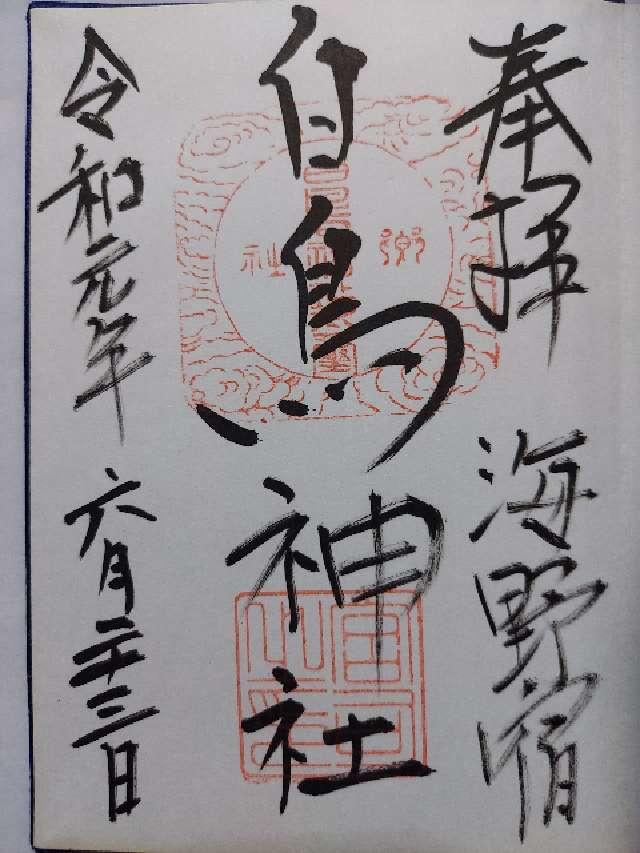 奉拝
海野宿
白鳥神社
郷社
令和元年
六月二十三日